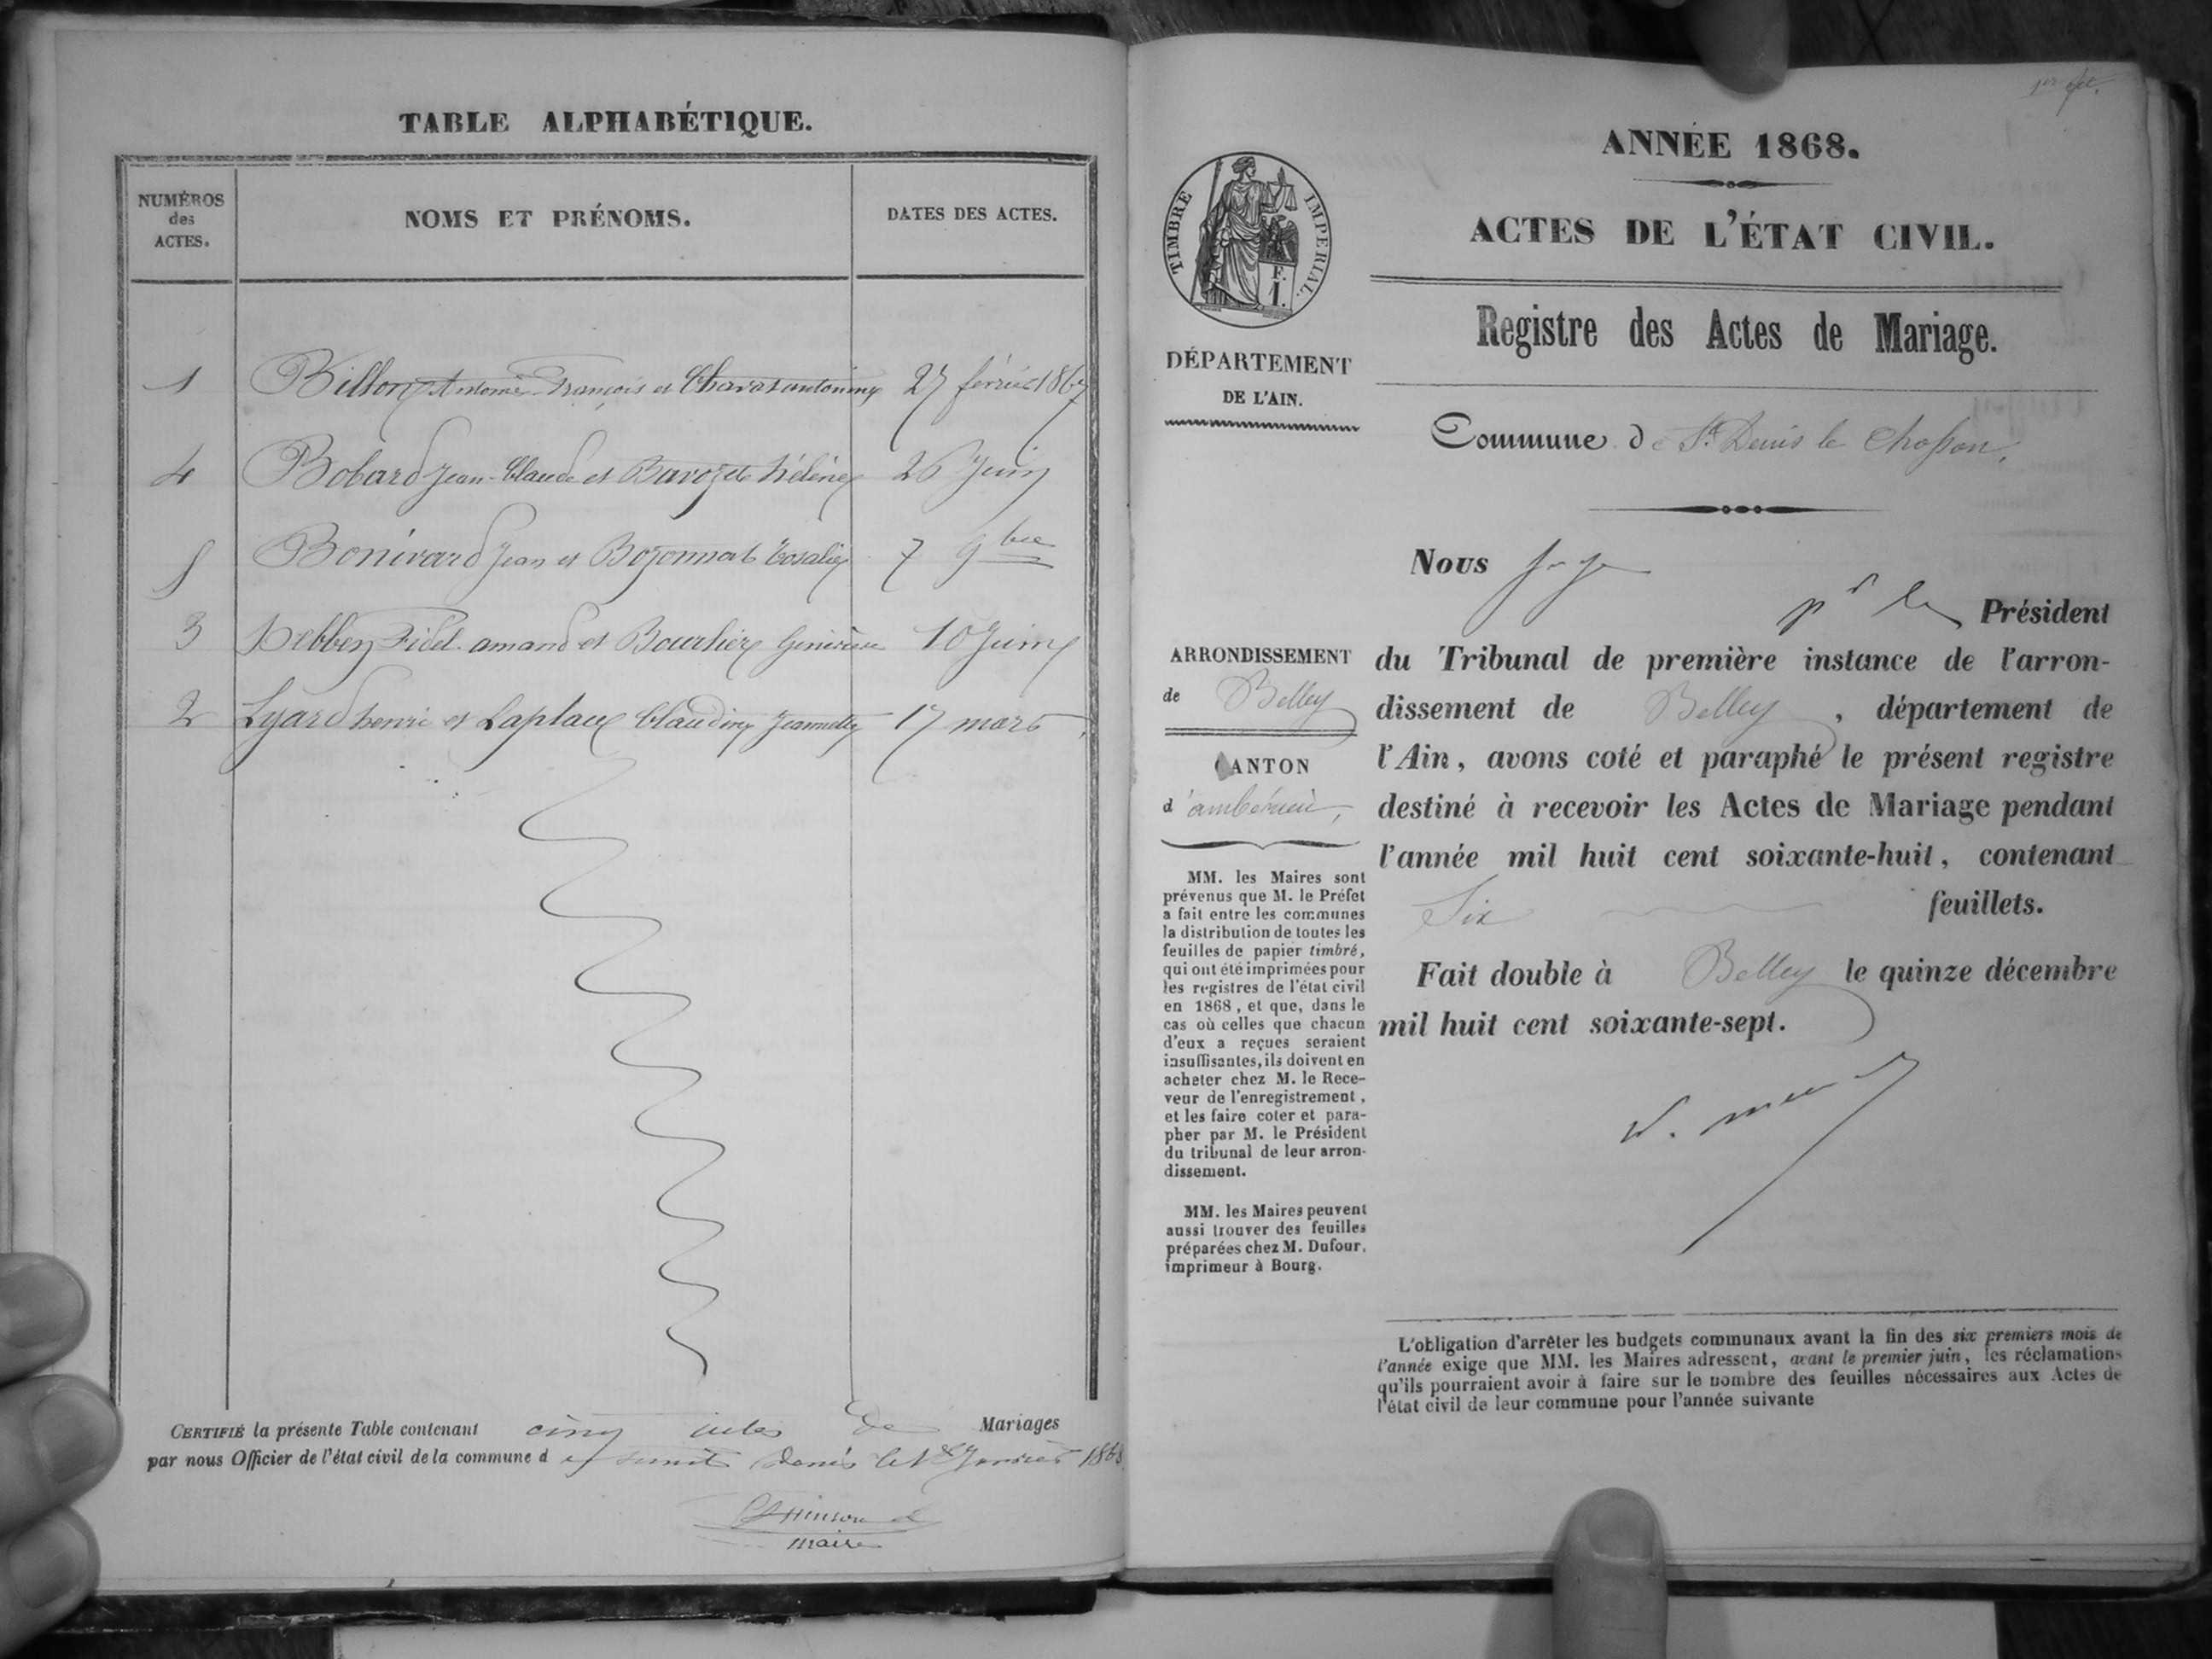 TABLE ALPHABÉTIQUE.
NUMÉROS
des
ACTES.
NOMS ET PRÉNOMS.
DATES DES ACTES.
1 Billon Antoine François et Charvat antoinine 27 février 1867
4 Bobard Jean-Claude et Bavozet hélène 26 Juin
5 Bonivard Jean et Bozonnat Rosalie 7 9bre
3 Debbey Fidel amand et Bourlier Geneviève 10 Juin
2 Lyard henri et Laplace Claudine Jeannette 17 mars
CERTIFIÉ la présente Table contenant cinq actes de Mariages
par nous Officier de l'état civil de la commune de saint Denis le 1er Janvier 1868
maire
1er
ANNÉE 1868.
ACTES DE L'ÉTAT CIVIL.
TIMBRE IMPERIAL.
F.
1.
Registre des Actes de Mariage.
DÉPARTEMENT
DE L'AIN.
Commune de St. Denis le Chosson.
Nous
pr le Président
ARRONDISSEMENT
de Belley
CANTON
d'ambérieu,
MM. les Maires sont
prévenus que M. le Préfet
a fait entre les communes
la distribution de toutes les
feuilles de papier timbré,
qui ont été imprimées pour
les registres de l'état civil
en 1868, et que, dans le
cas où celles que chacun
d'eux a reçues seraient
insuffisantes, ils doivent en
acheter chez M. le Rece-
veur de l'enregistrement,
et les faire coter et para-
pher par M. le Président
du tribunal de leur arron-
dissement.
MM. les Maires peuvent
aussi trouver des feuilles
préparées chez M. Dufour,
imprimeur à Bourg.
du Tribunal de première instance de l'arron-
dissement de Belley, département de
l'Ain, avons coté et paraphé le présent registre
destiné à recevoir les Actes de Mariage pendant
l'année mil huit cent soixante-huit, contenant
Six feuillets.
Fait double à Belley le quinze décembre
mil huit cent soixante-sept.
L'obligation d'arrêter les budgets communaux avant la fin des six premiers mois de
l'année exige que MM. les Maires adressent, avant le premier juin, les réclamations
qu'ils pourraient avoir à faire sur le nombre des feuilles nécessaires aux Actes de
l'état civil de leur commune pour l'année suivante